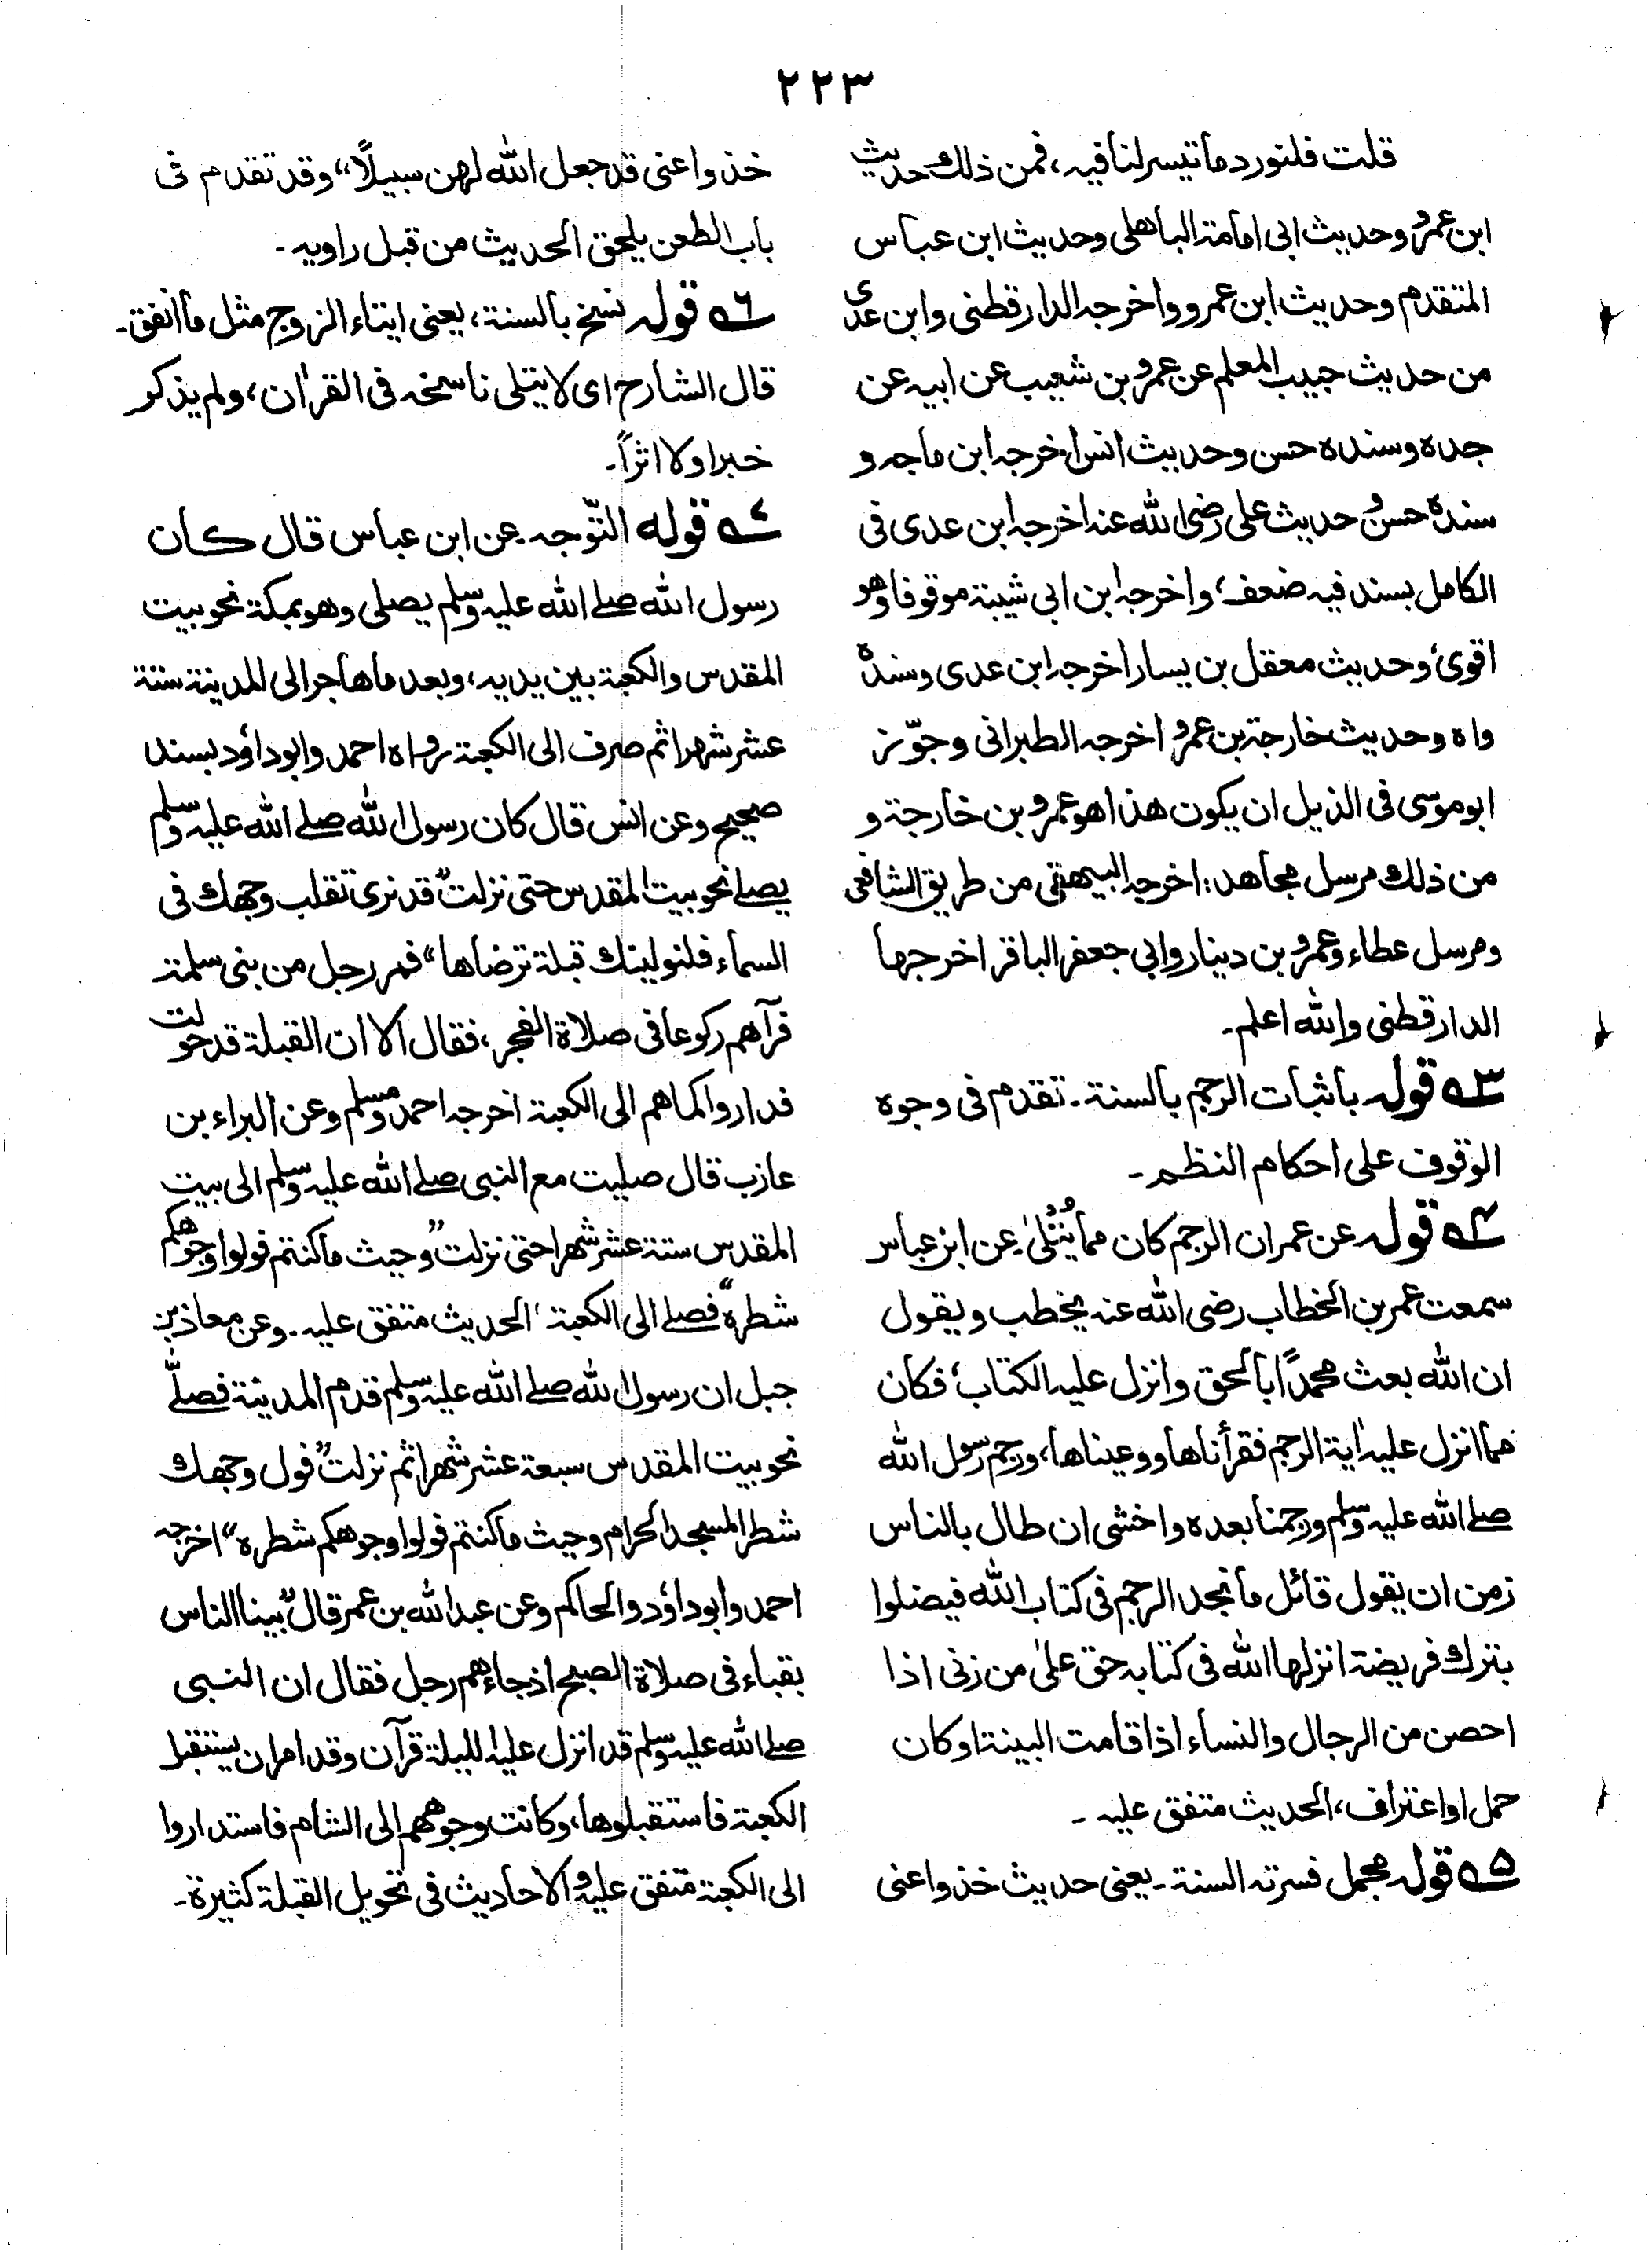 ٢٢٣
قلت فلنورد ما تيسر لنا فيه، فمن ذلك حديث
ابن عمرو وحديث ابى امامة الباهلى وحديث ابن عباس
المتقدم وحديث ابن عمرو واخرجه الدارقطنى وابن عدى
من حديث حبيب المعلم عن عمرو بن شعيب عن ابيه عن
جده وسنده حسن وحديث انس اخرجه ابن ماجه و
سنده حسن و حديث على رضى الله عنه اخرجه ابن عدى فى
الكامل بسند فيه ضعف، واخرجه ابن ابى شيبة موقوفا وهو
اقوى، وحديث معقل بن يسار اخرجه ابن عدى وسنده
واه وحديث خارجة بن عمرو اخرجه الطبرانى وجوّز
ابوموسى فى الذيل ان يكون هذا هو عمرو بن خارجة و
من ذلك مرسل مجاهد: اخرجه البيهقى من طريق الشافعى
ومرسل عطاء وعمرو بن دينار وابى جعفر الباقر اخرجها
الدارقطنى والله اعلم۔
٣ه قوله باثبات الرجم بالسنة۔ تقدم فى وجوه
الوقوف على احكام النظم۔
٤ه قوله عن عمر ان الرجم كان مما يُتْلىٰ۔ عن ابن عباس
سمعت عمر بن الخطاب رضى الله عنه يخطب ويقول
ان الله بعث محمدًا بالحق وانزل عليه الكتاب، فكان
مما انزل عليه اٰية الرجم فقرأناها ووعيناها، ورجم رسول الله
صلے الله عليه وسلم ورجمنا بعده واخشى ان طال بالناس
زمن ان يقول قائل ما نجد الرجم فى كتاب الله فيضلوا
بترك فريضة انزلها الله فى كتابه حق علىٰ من زنى اذا
احصن من الرجال والنساء اذا قامت البينة او كان
حمل او اعتراف، الحديث متفق عليه۔
٥ه قوله مجمل فسرته السنة۔ يعنى حديث خذوا عنى
خذوا عنى قد جعل الله لهن سبيلًا“ وقد تقدم فى
باب الطعن يلحق الحديث من قبل راويه۔
٦ه قوله نسخ بالسنة، يعنى ايتاء الزوج مثل ما انفق۔
قال الشارح اى لا يتلى ناسخه فى القراٰن، ولم يذكر
خبرا ولا اثراً۔
٧ه قوله التّوجه۔ عن ابن عباس قال كان
رسول الله صلے الله عليه وسلم يصلى وهو بمكة نحو بيت
المقدس والكعبة بين يديه، وبعد ما هاجر الى المدينة ستة
عشر شهرا ثم صرف الى الكعبة رواه احمد وابوداؤد بسند
صحيح وعن انس قال كان رسول الله صلے الله عليه وسلم
يصلے نحو بيت المقدس حتى نزلت ”قد نرى تقلب وجهك فى
السماء فلنولينك قبلة ترضاها“ فمر رجل من بنى سلمة
فرآهم ركوعا فى صلاة الفجر، فقال الا ان القبلة قد حولت
فداروا كما هم الى الكعبة اخرجه احمد ومسلم وعن البراء بن
عازب قال صليت مع النبى صلے الله عليه وسلم الى بيت
المقدس ستة عشر شهرا حتى نزلت ”وحيث ما كنتم فولوا وجوهكم
شطره“ فصلے الى الكعبة، الحديث متفق عليه۔ وعن معاذ بن
جبل ان رسول الله صلے الله عليه وسلم قدم المدينة فصلّے
نحو بيت المقدس سبعة عشر شهرا ثم نزلت ”فول وجهك
شطر المسجد الحرام وحيث ما كنتم فولوا وجوهكم شطره“ اخرجه
احمد وابوداؤد والحاكم وعن عبد الله بن عمر قال ”بينا الناس
بقباء فى صلاة الصبح اذ جاءهم رجل فقال ان النبى
صلے الله عليه وسلم قد انزل عليه الليلة قرآن وقد امر ان يستقبل
الكعبة فاستقبلوها، وكانت وجوههم الى الشام فاستداروا
الى الكعبة متفق عليه والاحاديث فى تحويل القبلة كثيرة۔